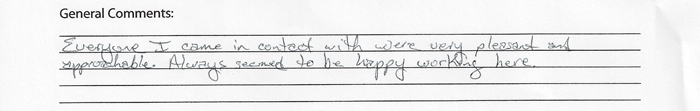 General Comments:
Everyone I came in contact with were very pleasant and
approachable. Always seemed to be happy working here.